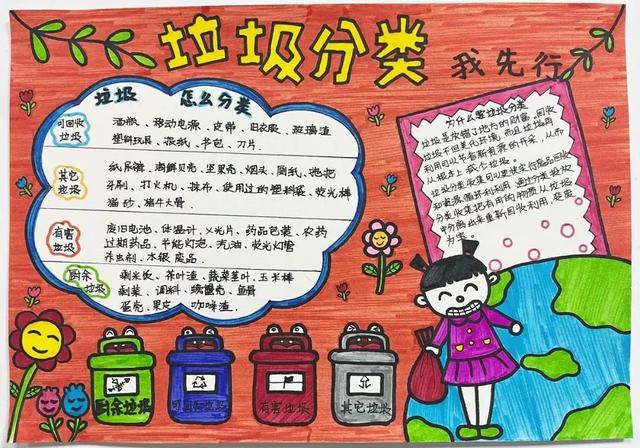 垃圾分类
我先行
垃圾 怎么分类
可回收
垃圾
酒瓶、移动电源、皮带、旧衣服、玻璃渣
塑料玩具、报纸、书包、刀片
其它
垃圾
纸尿裤、海鲜贝壳、坚果壳、烟头、厕纸、拖把
牙刷、打火机、抹布、使用过的塑料袋、荧光棒
猫砂、猪牛头骨
有害
垃圾
废旧电池、体温计、X光片、药品包装、农药
过期药品、节能灯泡、汽油、荧光灯管
杀虫剂、水银废品
厨余
垃圾
剩米饭、茶叶渣、蔬菜茎叶、玉米棒
剩菜、调料、螃蟹壳、鱼骨
蛋壳、果皮、咖啡渣
为什么要垃圾分类
垃圾是放错了地方的财富。回收
垃圾不但美化环境，而且垃圾再
利用可以节省新资源的开采，从而
从根本上减少垃圾。
垃圾分类收集可以更快实行废品回收
和资源循环利用，通过分类投放
分类收集把有用的物质从垃圾
中分离出来重新回收利用，变废
为宝。
厨余垃圾
可回收垃圾
有害垃圾
其它垃圾